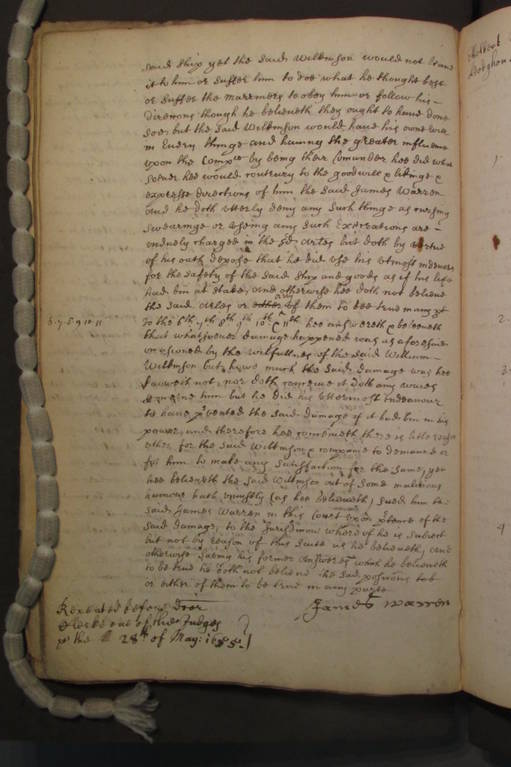 said ship yet the said Wilkinson would not
it to him or suffer him to doe what he thought best
or suffer the marriners to obey him or follow his
directions though he beleeveth they ought to have done
soe, but the said Wilkinson would have his owne will
in every thinge and having the greater influence
upon the Compie by being their Comander hee did what
hee would contrary to the goodwill & likinge &
expresse directions of him the said James Warren
and he doth utterly deny any such thinge as cursing
swearinge or useing any such Execrations are
unduely charged in the sd arles but doth by vertue
of his oath depose that he did use his utmost indeavor
for the safety of the said ship and goods as if his life
had bin at stake, and otherwise hee doth not beleeve
the said arles or any of them to bee true
6. 7. 8. 9. 10. 11
To the 6th 7th 8th 9th 10th & 11th hee answereth & beleeveth
that whatsoever damage happened was as aforesaid
occasioned by the wilfullnes of the said William
Wilkinson but how much the said damage was hee
knoweth not, nor doth conceive it doth any wayes
concerne him but he did his uttermost endeavour
to have prvented the said damage if it had bin in his
power, and therefore hee conceiveth there is little reason
either for the said Wilkinson & companie to demand or
for him to make any satisfaction for the same, yet
hee beleeveth the said Wilkinson out of some malitious
humour hath unjustly (as hee beleeveth) sued him the
said James Warren in this Court upon prtence of the
said damage, to the Jurisdiction whereof he is subject
but not by reason of this suite as he beleeveth, and
otherwise saving his former answeres what he beleeveth
to be true he doth not beleeve the said positions
or either of them to be true in any parte
James Warren
Repeated before Doctor
Clerke one of the Judges
the 28th of May: 1655.